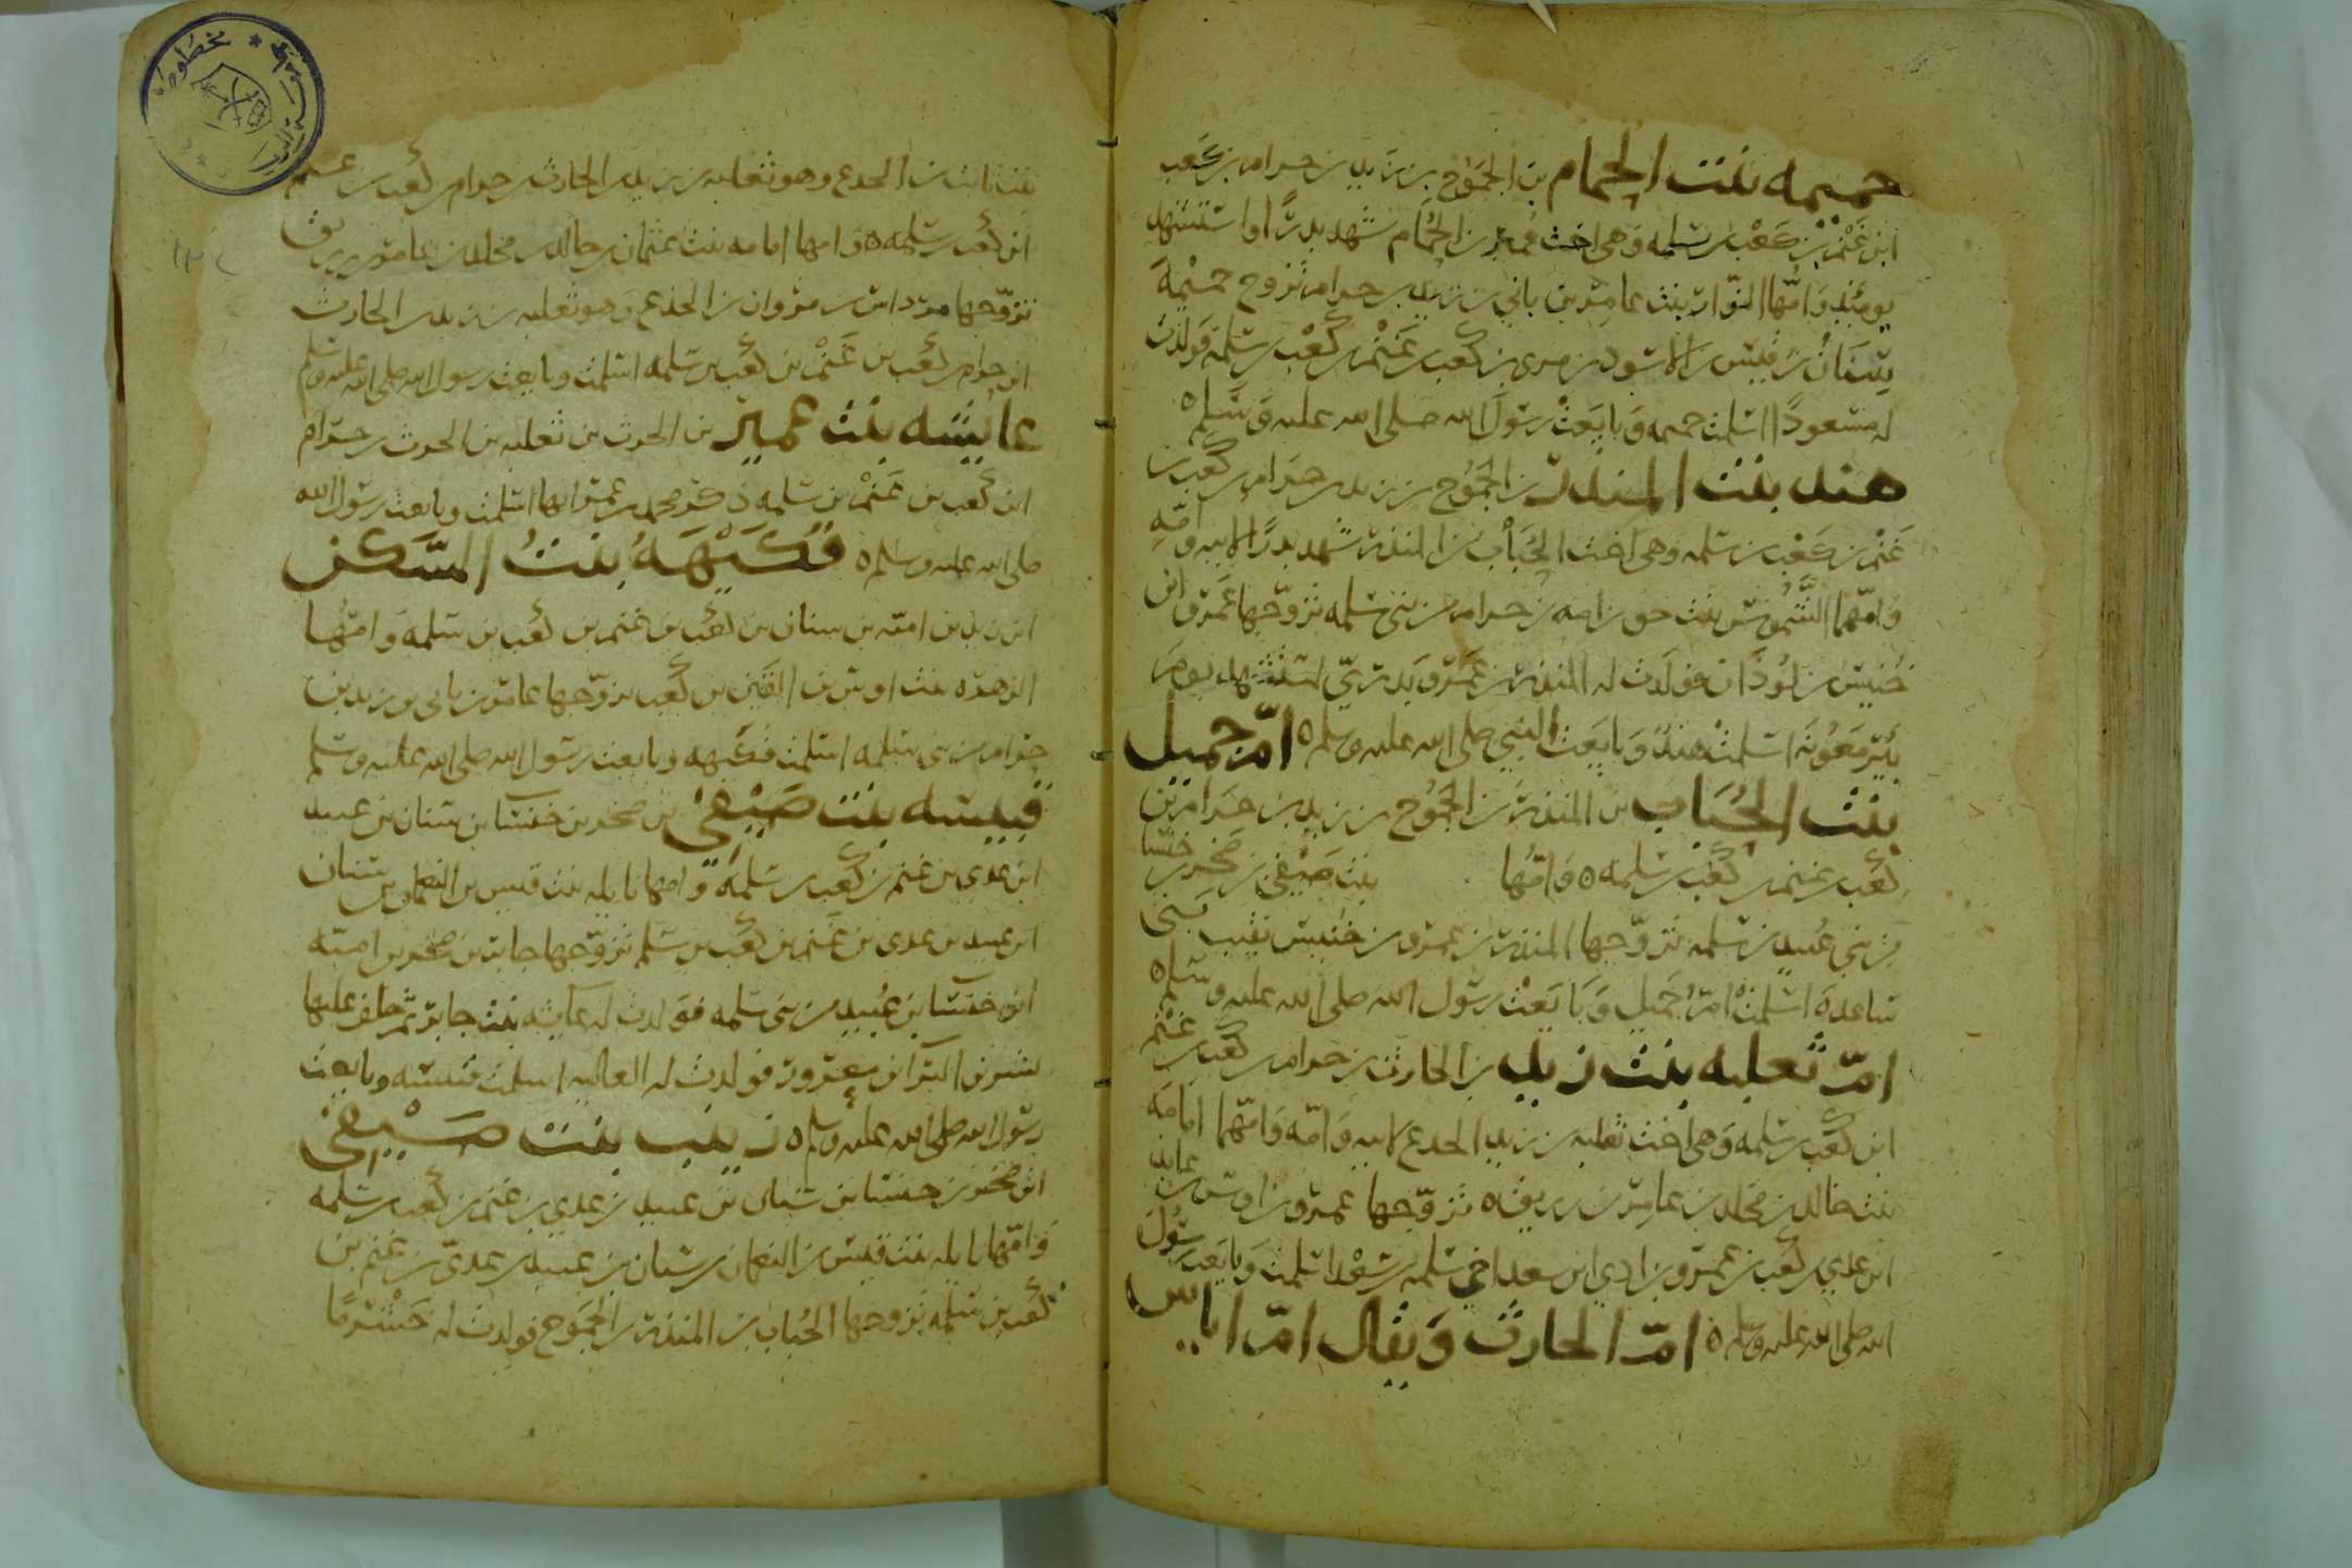 حميمه بنت الحمام بن الجموح بن زيد بن حرام بن كعب
ابن غنم بن كعب بن سلمه وهي اخت عمير بن الحمام شهد بدرا واستشهد
يومئذ وامها النوار بنت عامر بن نابي بن زيد بن حرام تزوج حميمة
سنان بن قيس بن الاسود بن مري بن كعب بن غنم بن كعب بن سلمه فولدت
له مسعودا اسلمت حميمه وبايعت رسول الله صلى الله عليه وسلم ه
هند بنت المنذر بن الجموح بن زيد بن حرام بن كعب بن
غنم بن كعب بن سلمه وهي اخت الحباب بن المنذر شهد بدرا لابيه وامه
وامهما الشموس بنت حق بن امه بن حرام من بني سلمه تزوجها عمرو ابن
خنيس بن لوذان فولدت له المنذر بن عمرو بدري استشهد يوم
بئر معونه اسلمت هند وبايعت النبي صلى الله عليه وسلم ه ام جميل
بنت الحباب بن المنذر بن الجموح بن زيد بن حرام بن
كعب بن غنم بن كعب بن سلمه ه وامها بنت صيفي بن صخر بن خنسا
من بني عبيد بن سلمه تزوجها المنذر بن عمرو بن خنيس نقيب بني
ساعدة اسلمت ام جميل وبايعت رسول الله صلى الله عليه وسلم ه
ام ثعلبه بنت زيد بن الحارث بن حرام بن كعب بن غنم
ابن كعب بن سلمه وهي اخت ثعلبه بن زيد الجدع لابيه وامه وامهما امامة
بنت خالد بن مخلد بن عامر بن زريق ه تزوجها عمرو بن اوس بن عايذ
ابن عدي بن كعب بن عمرو بن ادي ابن سعد اخي سلمه بن سعد اسلمت وبايعت رسول
الله صلى الله عليه وسلم ه ام الحارث ويقال ام اياس
بنت ثابت بن الجدع وهو ثعلبه بن زيد بن الحارث بن حرام بن كعب بن غنم
ابن كعب بن سلمه ه وامها امامه بنت عثمان بن خالد بن مخلد بن عامر بن زريق
تزوجها مرداس بن مروان بن الجذع وهو ثعلبه بن زيد بن الحارث
ابن حرام بن كعب بن غنم بن كعب بن سلمه اسلمت وبايعت رسول الله صلى الله عليه وسلم
عايشه بنت عمير بن الحرث بن ثعلبه بن الحرث بن حرام
ابن كعب بن غنم بن سلمه ذكر محمد بن عمر انها اسلمت وبايعت رسول الله
صلى الله عليه وسلم ه فكيهة بنت السكن
ابن زيد بن اميه بن سنان بن كعب بن غنم بن كعب بن سلمه وامها
الزهرة بنت اوس بن القين بن كعب تزوجها عامر بن نابي بن زيد بن
حرام من بني سلمه اسلمت فكيهه وبايعت رسول الله صلى الله عليه وسلم
قبيسه بنت صيفي بن صخر بن خنسا بن سنان بن عبيد
ابن عدي بن غنم بن كعب بن سلمة وامها نايله بنت قيس بن النعمان بن سنان
ابن عبيد بن عدي بن غنم بن كعب بن سلمه تزوجها جابر بن صخر بن اميه
ابن خنسا بن عبيد من بني سلمه فولدت له عايشه بنت جابر ثم خلف عليها
بشر بن البرآ بن معرور فولدت له العاليه اسلمت قبيسه وبايعت
رسول الله صلى الله عليه وسلم ه زينب بنت صيفي
ابن صخر بن خنسا بن سنان بن عبيد بن عدي بن غنم بن كعب بن سلمه
وامها نايله بنت قيس بن النعمان بن سنان بن عبيد بن عدي بن غنم بن
كعب بن سلمه تزوجها الحباب بن المنذر بن الجموح فولدت له خشرما